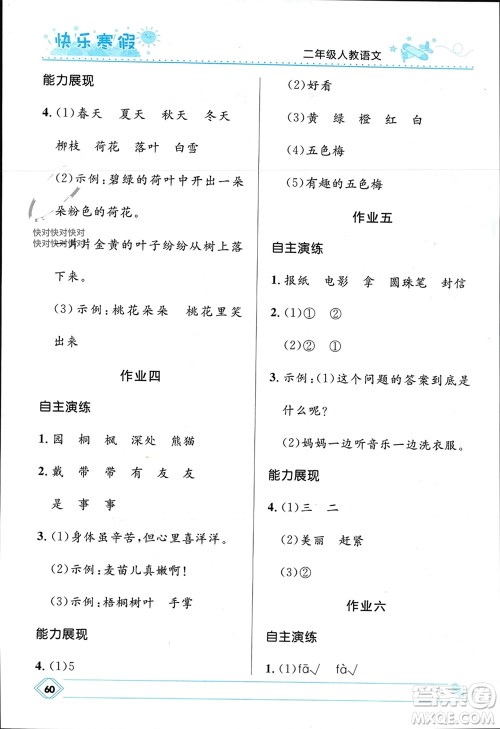 快乐寒假
二年级人教语文
能力展现
4.(1)春天 夏天 秋天 冬天
柳枝 荷花 落叶 白雪
(2)示例：碧绿的荷叶中开出一朵
朵粉色的荷花。
快对快对快对
快对快对快对
一片片金黄的叶子纷纷从树上落
下来。
(3)示例：桃花朵朵 桃花笑
出来
作业四
自主演练
1.园 桐 枫 深处 熊猫
2.戴 带 带 有 友 友
是 事 事
3.(1)身体虽辛苦，但心里喜洋洋。
(2)示例：麦苗儿真嫩啊！
(3)示例：梧桐树叶 手掌
能力展现
4.(1)5
60
(2)好看
(3)黄 绿 橙 红 白
(4)②
(5)五色梅
(6)有趣的五色梅
作业五
自主演练
1.报纸 电影 拿 圆珠笔 封信
2.(1)① ②
(2)② ①
3.示例：(1)这个问题的答案到底是
什么呢？
(2)妈妈一边听音乐一边洗衣服。
能力展现
4.(1)三 二
(2)美丽 赶紧
(3)②
作业六
自主演练
1.(1)fā√ fà√
答案圈
MXQE.COM